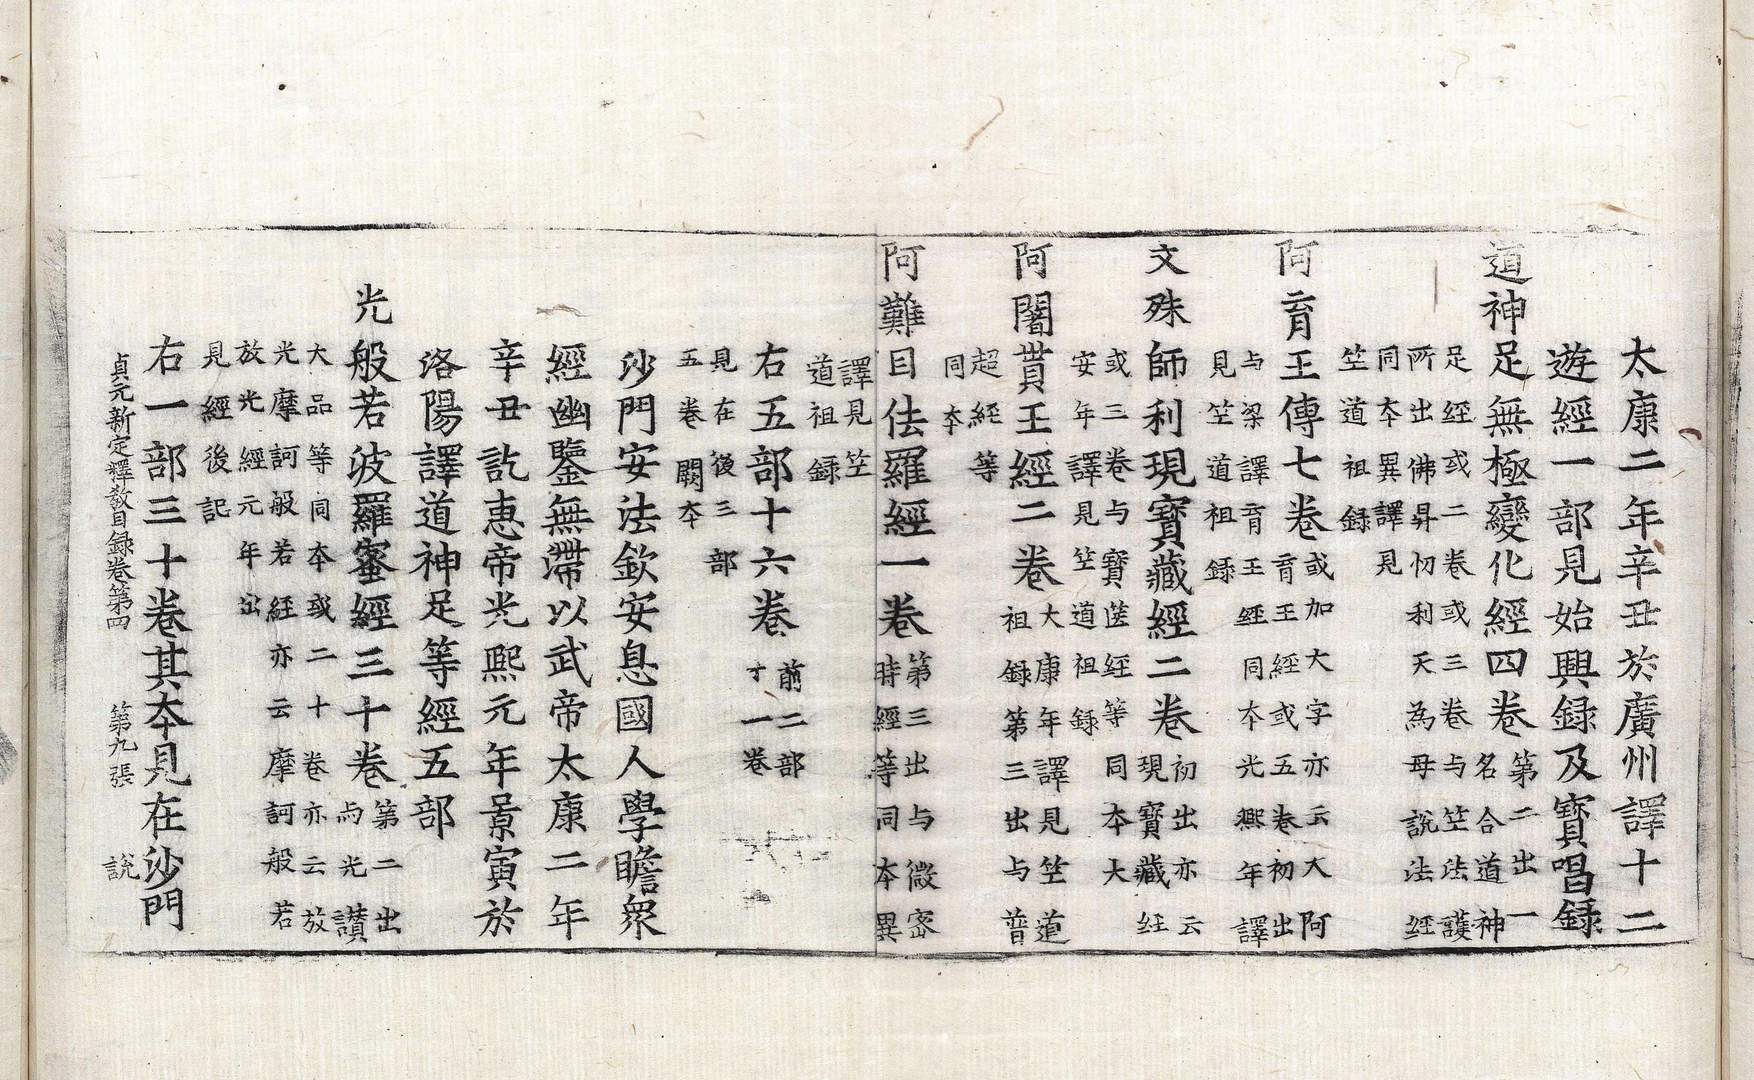 太康二年辛丑於廣州譯十二
遊經一部見始興録及寶唱録
道神足無極變化經四卷
第二出一
名合道神
足經或二卷或三卷与笁法護
所出佛昇忉利天為母說法經
同夲異譯見
笁道祖録
阿育王傳七卷
或加大字亦云大阿
育王經或五卷初出
与梁譯育王經同夲光熙年譯
見笁道祖録
文殊師利現寶藏經二卷
初出亦云
現寶藏経
或三卷与寶篋經等同夲大
安年譯見笁道祖録
阿闍貰王經二卷
大康年譯見笁道
祖録第三出与普
超經等
同夲
阿難目佉羅經一卷
第三出与微密
時經等同夲異
譯見笁
道祖録
右五部十六卷
前二部
十一卷
見在後三部
五卷闕夲
沙門安法欽安息國人學瞻衆
經幽鑒無滯以武帝太康二年
辛丑訖惠帝光熙元年景寅於
洛陽譯道神足等經五部
光般若波羅蜜經三十卷
第二出
与光讃
大品等同夲或二十卷亦云放
光摩訶般若經亦云摩訶般若
放光經元年出
見經後記
右一部三十卷其夲見在沙門
貞元新定釋教目録卷第四 第九張 說